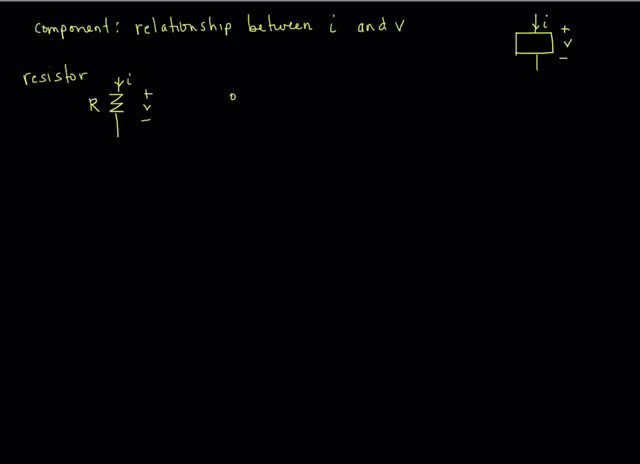 component: relationship between i and v
i
+
v
−
resistor
i
R
+
v
−